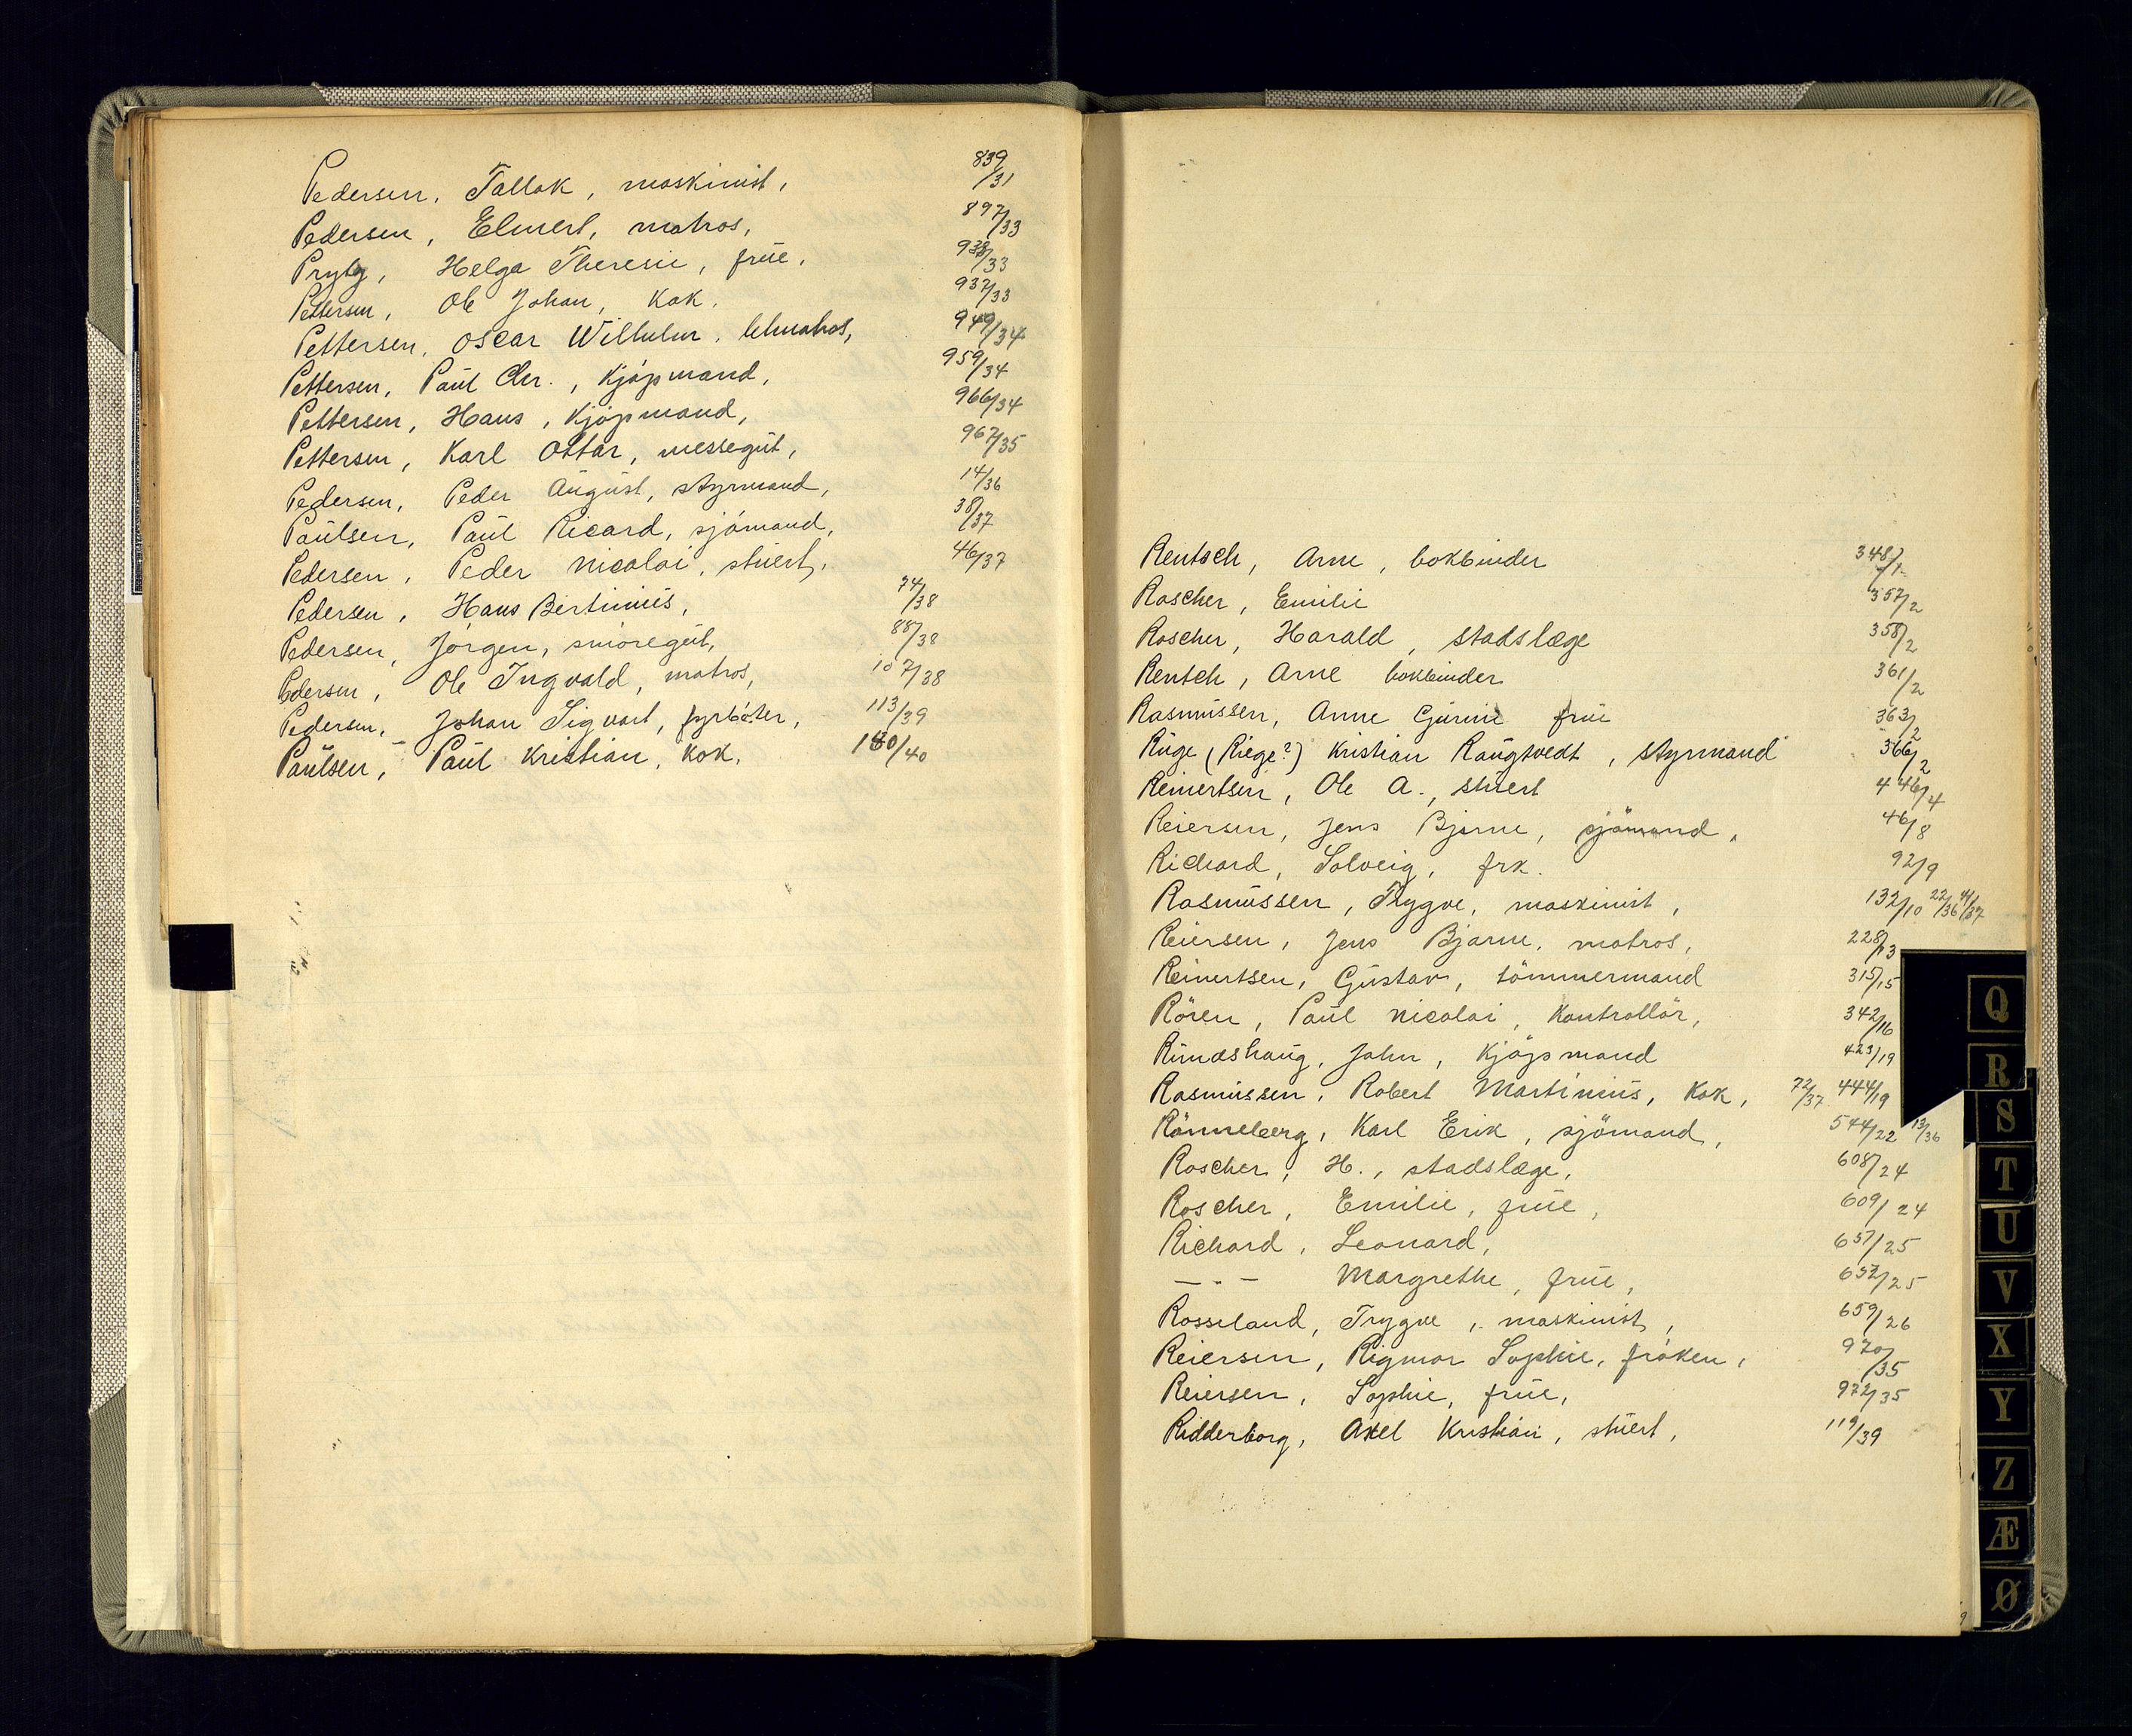 Pedersen, Tallak, maskinist, 839/31
Pedersen, Elmert, matros, 897/33
Prytz, Helga Theresie, frue, 938/33
Pettersen, Ole Johan, kok. 937/33
Pettersen, Oscar Wilhelm, letmatros, 949/34
Pettersen, Paul Chr., kjöpmand, 959/34
Pettersen, Hans, kjöpmand, 966/34
Pettersen, Karl Ottar, messegut, 967/35
Pedersen, Peder August, styrmand, 14/36
Paulsen, Paul Ricard, sjömand, 38/37
Pedersen, Peder Nicolai, stuert, 46/37
Pedersen, Hans Bertinius, 74/38
Pedersen, Jörgen, smöregut, 88/38
Pedersen, Ole Ingvald, matros, 107/38
Pedersen, Johan Sigvart, fyrböter, 113/39
Paulsen, Paul Kristian, kok, 180/40
Rentsch, Arne, bokbinder 348/1
Roscher, Emilie 357/2
Roscher, Harald, stadslæge 358/2
Rentch, Arne bokbinder 361/2
Rasmussen, Anne Gurine frue 363/2
Ruge (Riege?) Kristian Raugtvedt, styrmand 366/2
Reinertsen, Ole A., stuert 446/4
Reiersen, Jens Bjarne, sjömand, 46/8
Richard, Solveig, frk. 92/9
Rasmussen, Trygve, maskinist, 132/10 22/36 44/37
Reiersen, Jens Bjarne, matros, 228/13
Reinertsen, Gustav, tömmermand 315/15
Rören, Paul Nicolai, kontrollör, 342/16
Rundshaug, John, kjöpmand 423/19
Rasmussen, Robert Martinius, kok, 72/37 444/19
Rönneberg, Karl Erik, sjömand, 544/22 13/36
Roscher, H., stadslæge, 608/24
Roscher, Emilie, frue, 609/24
Richard, Leonard, 651/25
— " — Margrethe, frue, 652/25
Rosseland, Trygve, maskinist, 659/26
Reiersen, Rigmor Sophie, fröken, 970/35
Reiersen, Sophie, frue, 972/35
Ridderborg, Axel Kristian, stuert, 119/39
Q
R
S
T
U
V
X
Y
Z
Æ
Ø